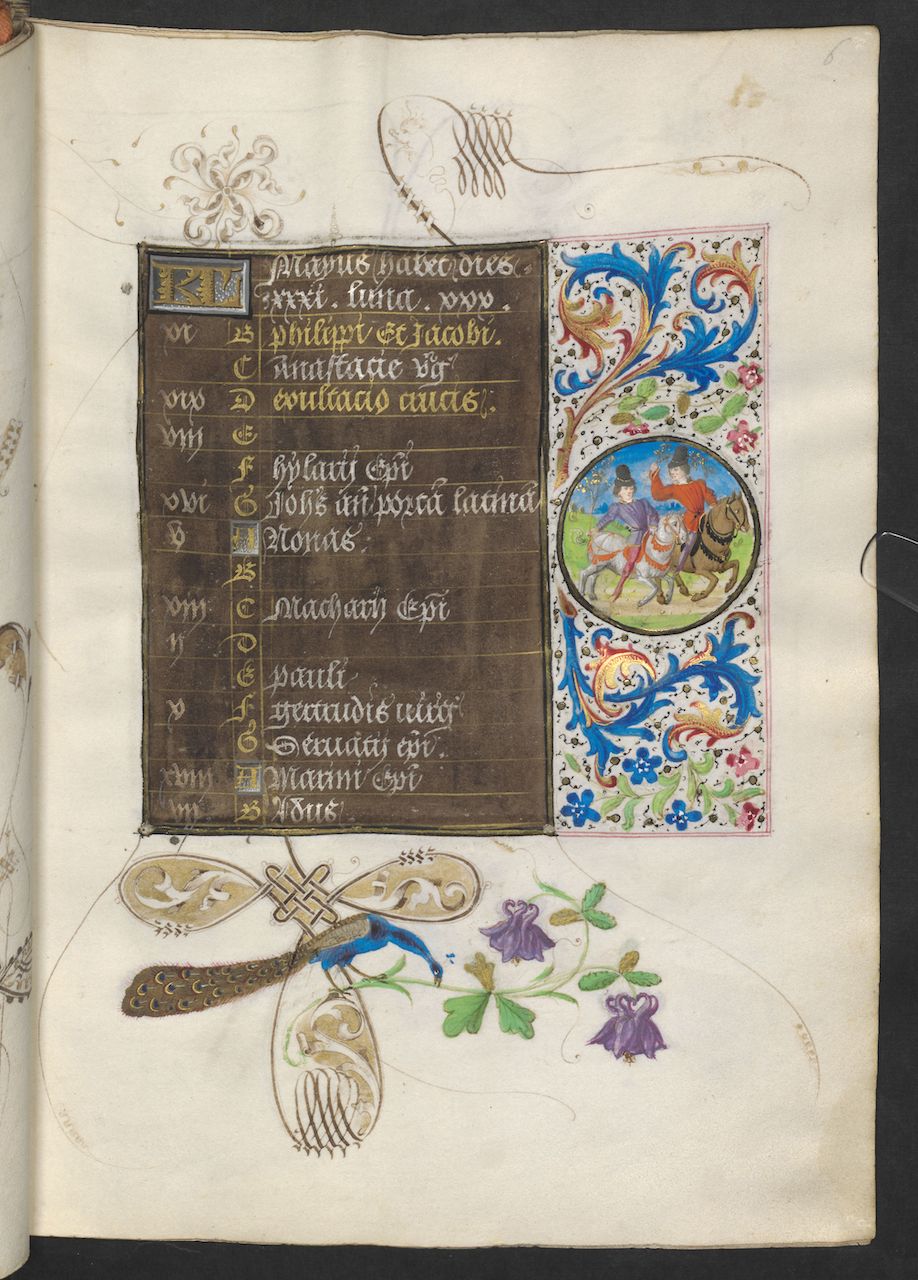 6
KL Mayus habet dies
xxxi. luna. xxx.
xi B philippi Et Jacobi.
C Anastacie v̄g
xix D exultacio crucis.
viij E
F hylarij Ep̄i
xvi G Joh̄s an̄ porta latina
v A Nonas.
B
xiij C Macharij Ep̄i
ij D
E pauli
x F gertrudis uirḡ
G Seruatij ep̄i.
xviij A Marini Ep̄i
vij B Idus